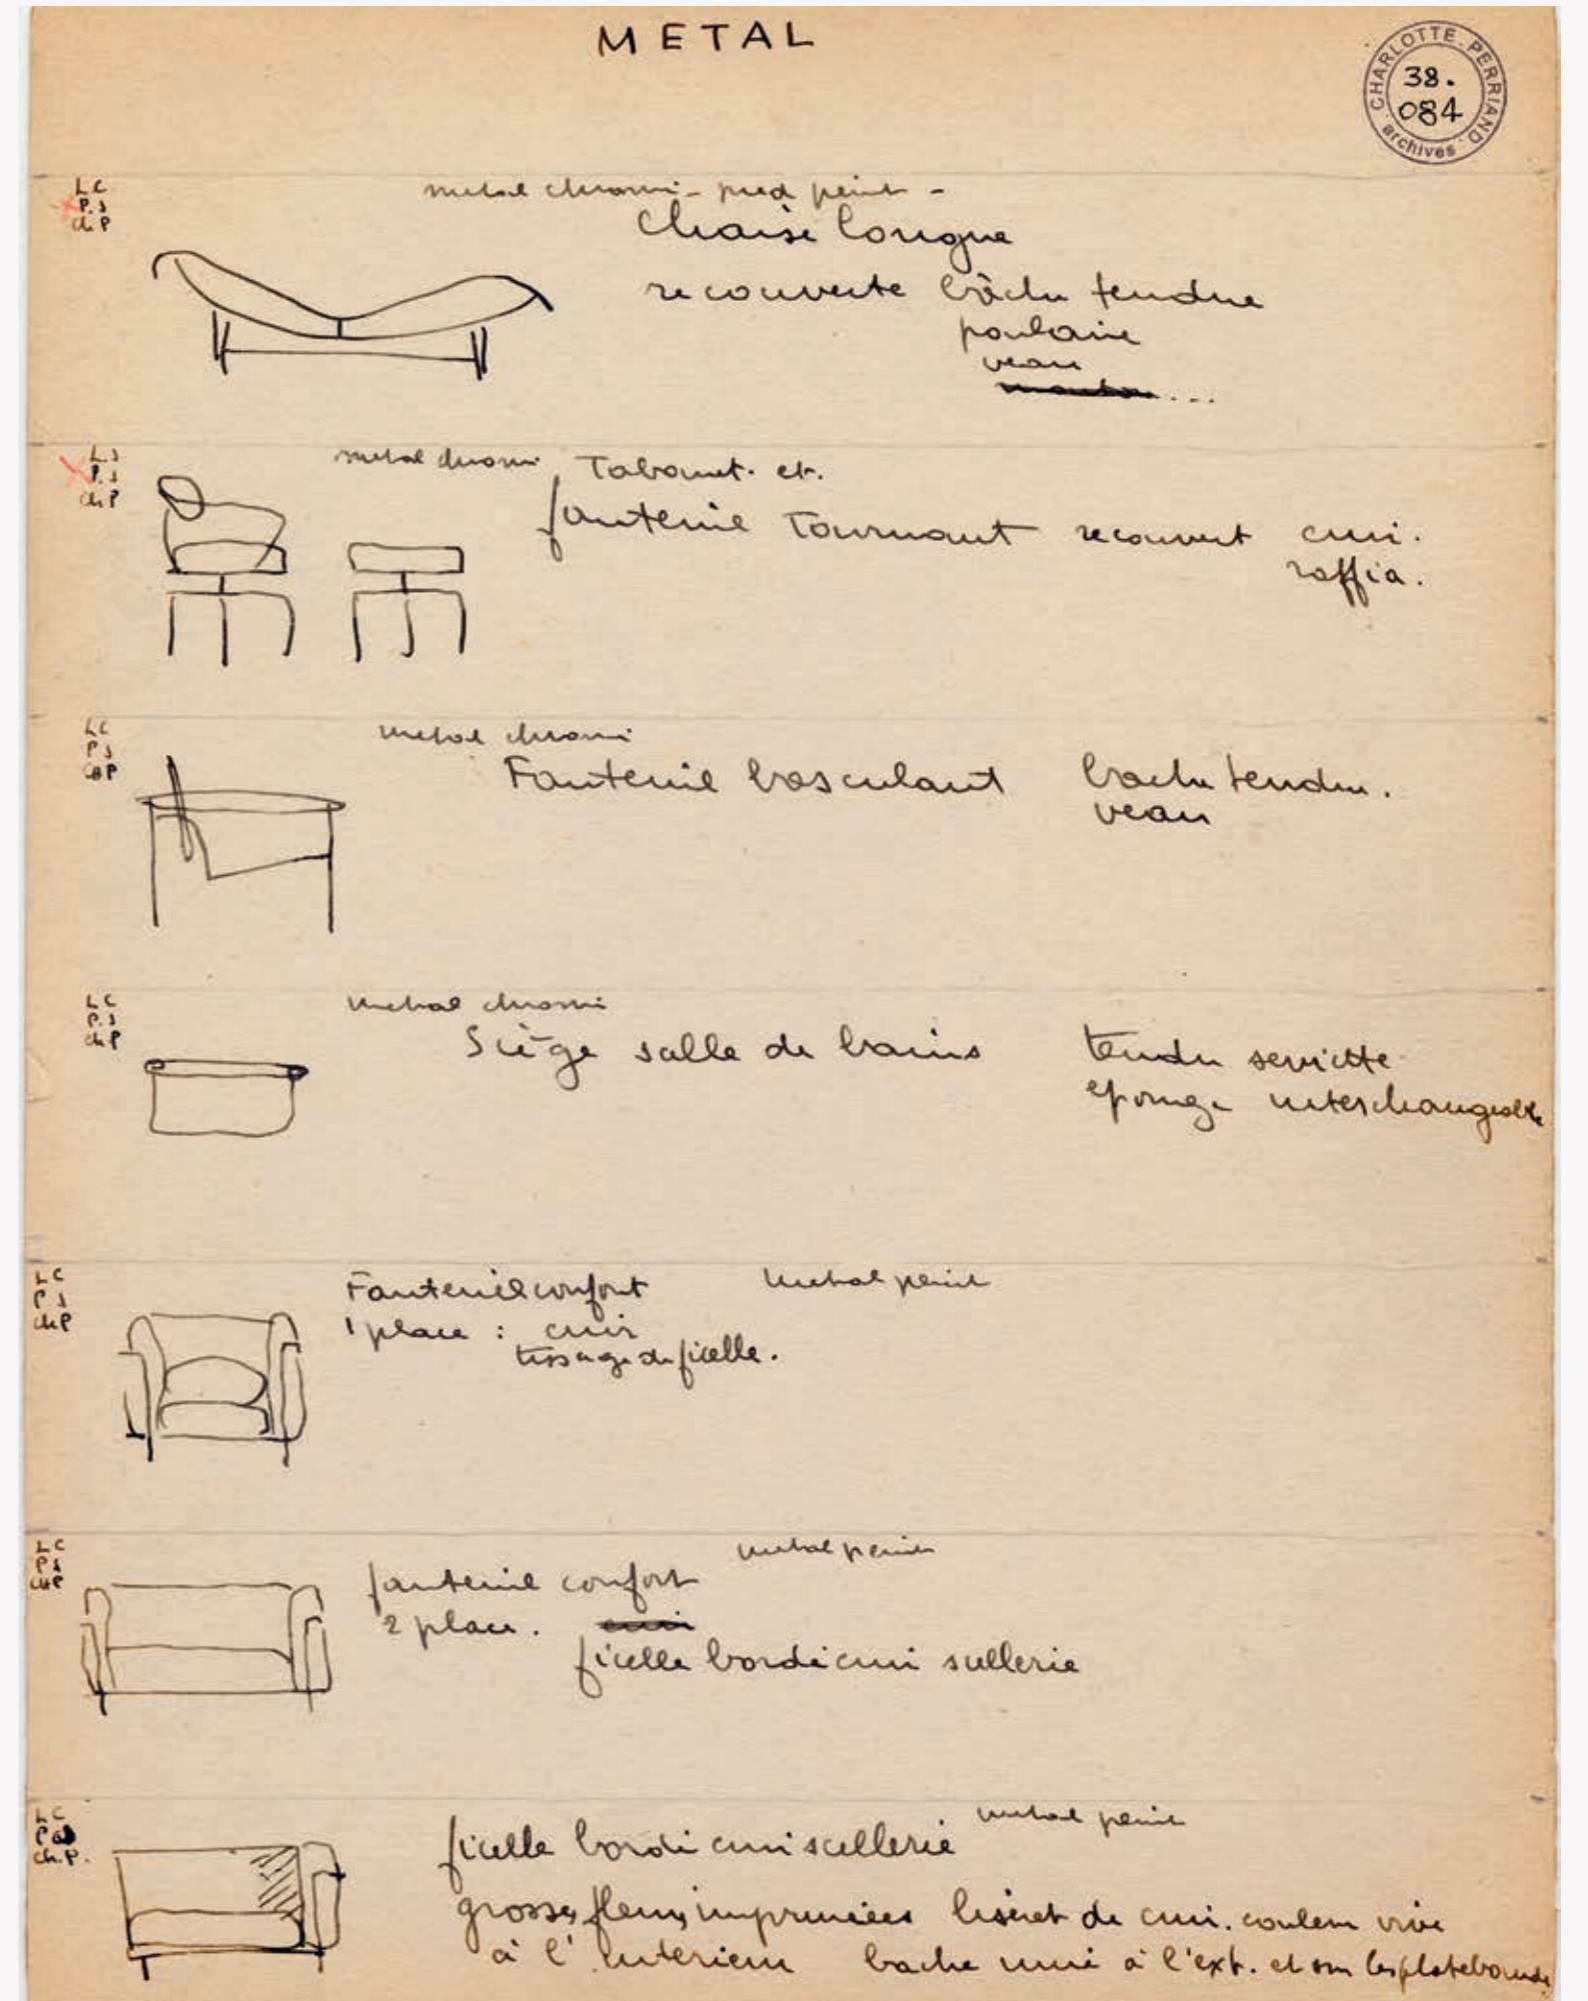 METAL
CHARLOTTE PERRIAND archives
38.
084
L C
P. J
ch P
metal chromé - pied peint -
Chaise longue
recouverte bâche tendue
poulain
veau
mouton ...
L. J
P. J
ch P
metal chromé Tabouret. et.
fauteuil Tournant recouvert cuir.
raffia.
L C
P J
ch P
metal chromé
Fauteuil basculant bache tendue.
veau
L C
P. J
ch P
metal chromé
Siège salle de bains tendu serviette
eponge interchangeable
L C
P J
ch P
Fauteuil confort metal peint
1 place : cuir
tissage de ficelle.
L C
P J
ch P
metal peint
fauteuil confort
2 place. cuir
ficelle bordé cuir sellerie
L C
P J
ch. P.
ficelle bordé cuir scellerie metal peint
grosses fleurs imprimées liseret de cuir. couleur vive
à l'interieur bache unie à l'ext. et sur les platebandes